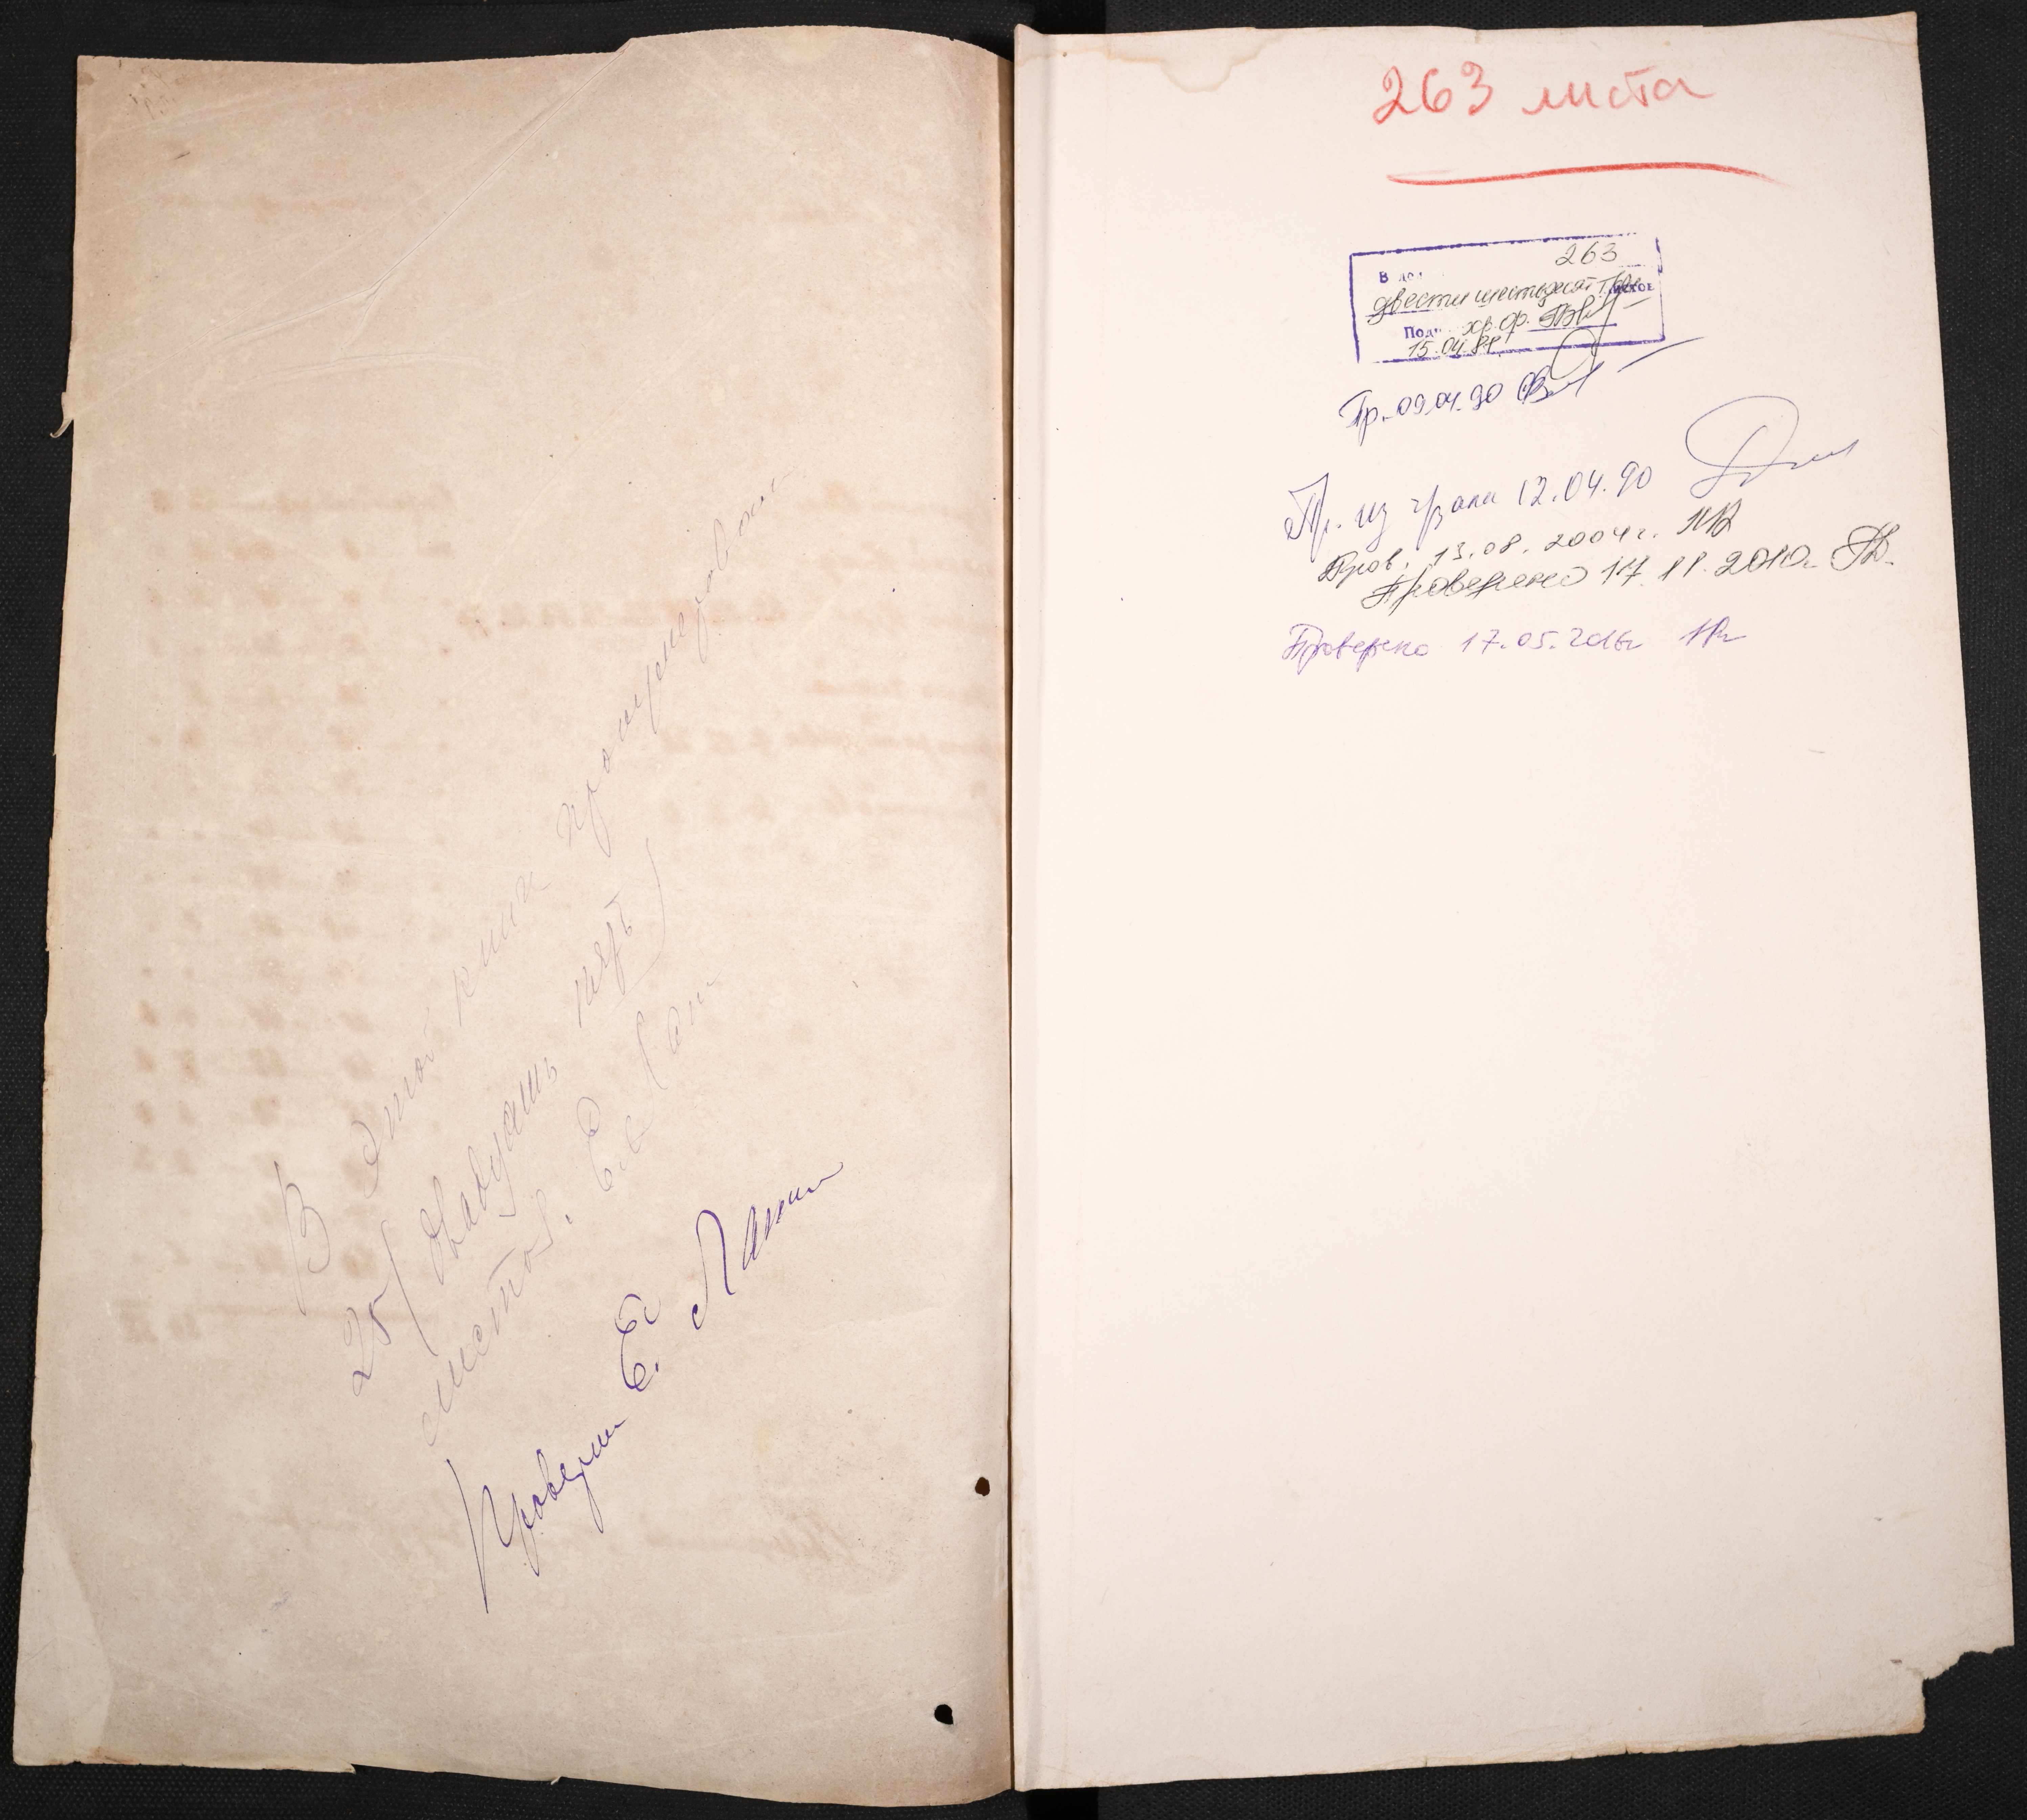 В этой книги пронумерован
25 (двадцать пять)
листов. Е. Лап
Проверил Е. Лапин
263 листа
263
В дел
двести шестьдесят три листов
Подп хр. ф.
15.04.81
Пр. 09.04.90
Пр. из 12.04.90
Пров. 13.08.2004г.
Проверено 17.11.2010г.
Проверено 17.05.2016г